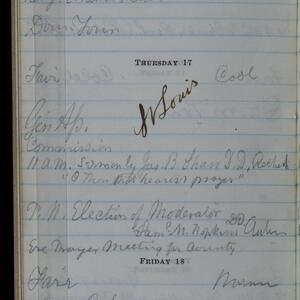 Down Town
THURSDAY 17
Fair Cool
St Louis
Gen As.
Commission
11 A.M. Sermon by Jas. B Shaw D.D. Roches
"O Thou that hearest prayer"
P.M. Election of Moderator
Saml. M. Hopkins DD Auburn
Eve Prayer Meeting for
FRIDAY 18
Fair Warmer